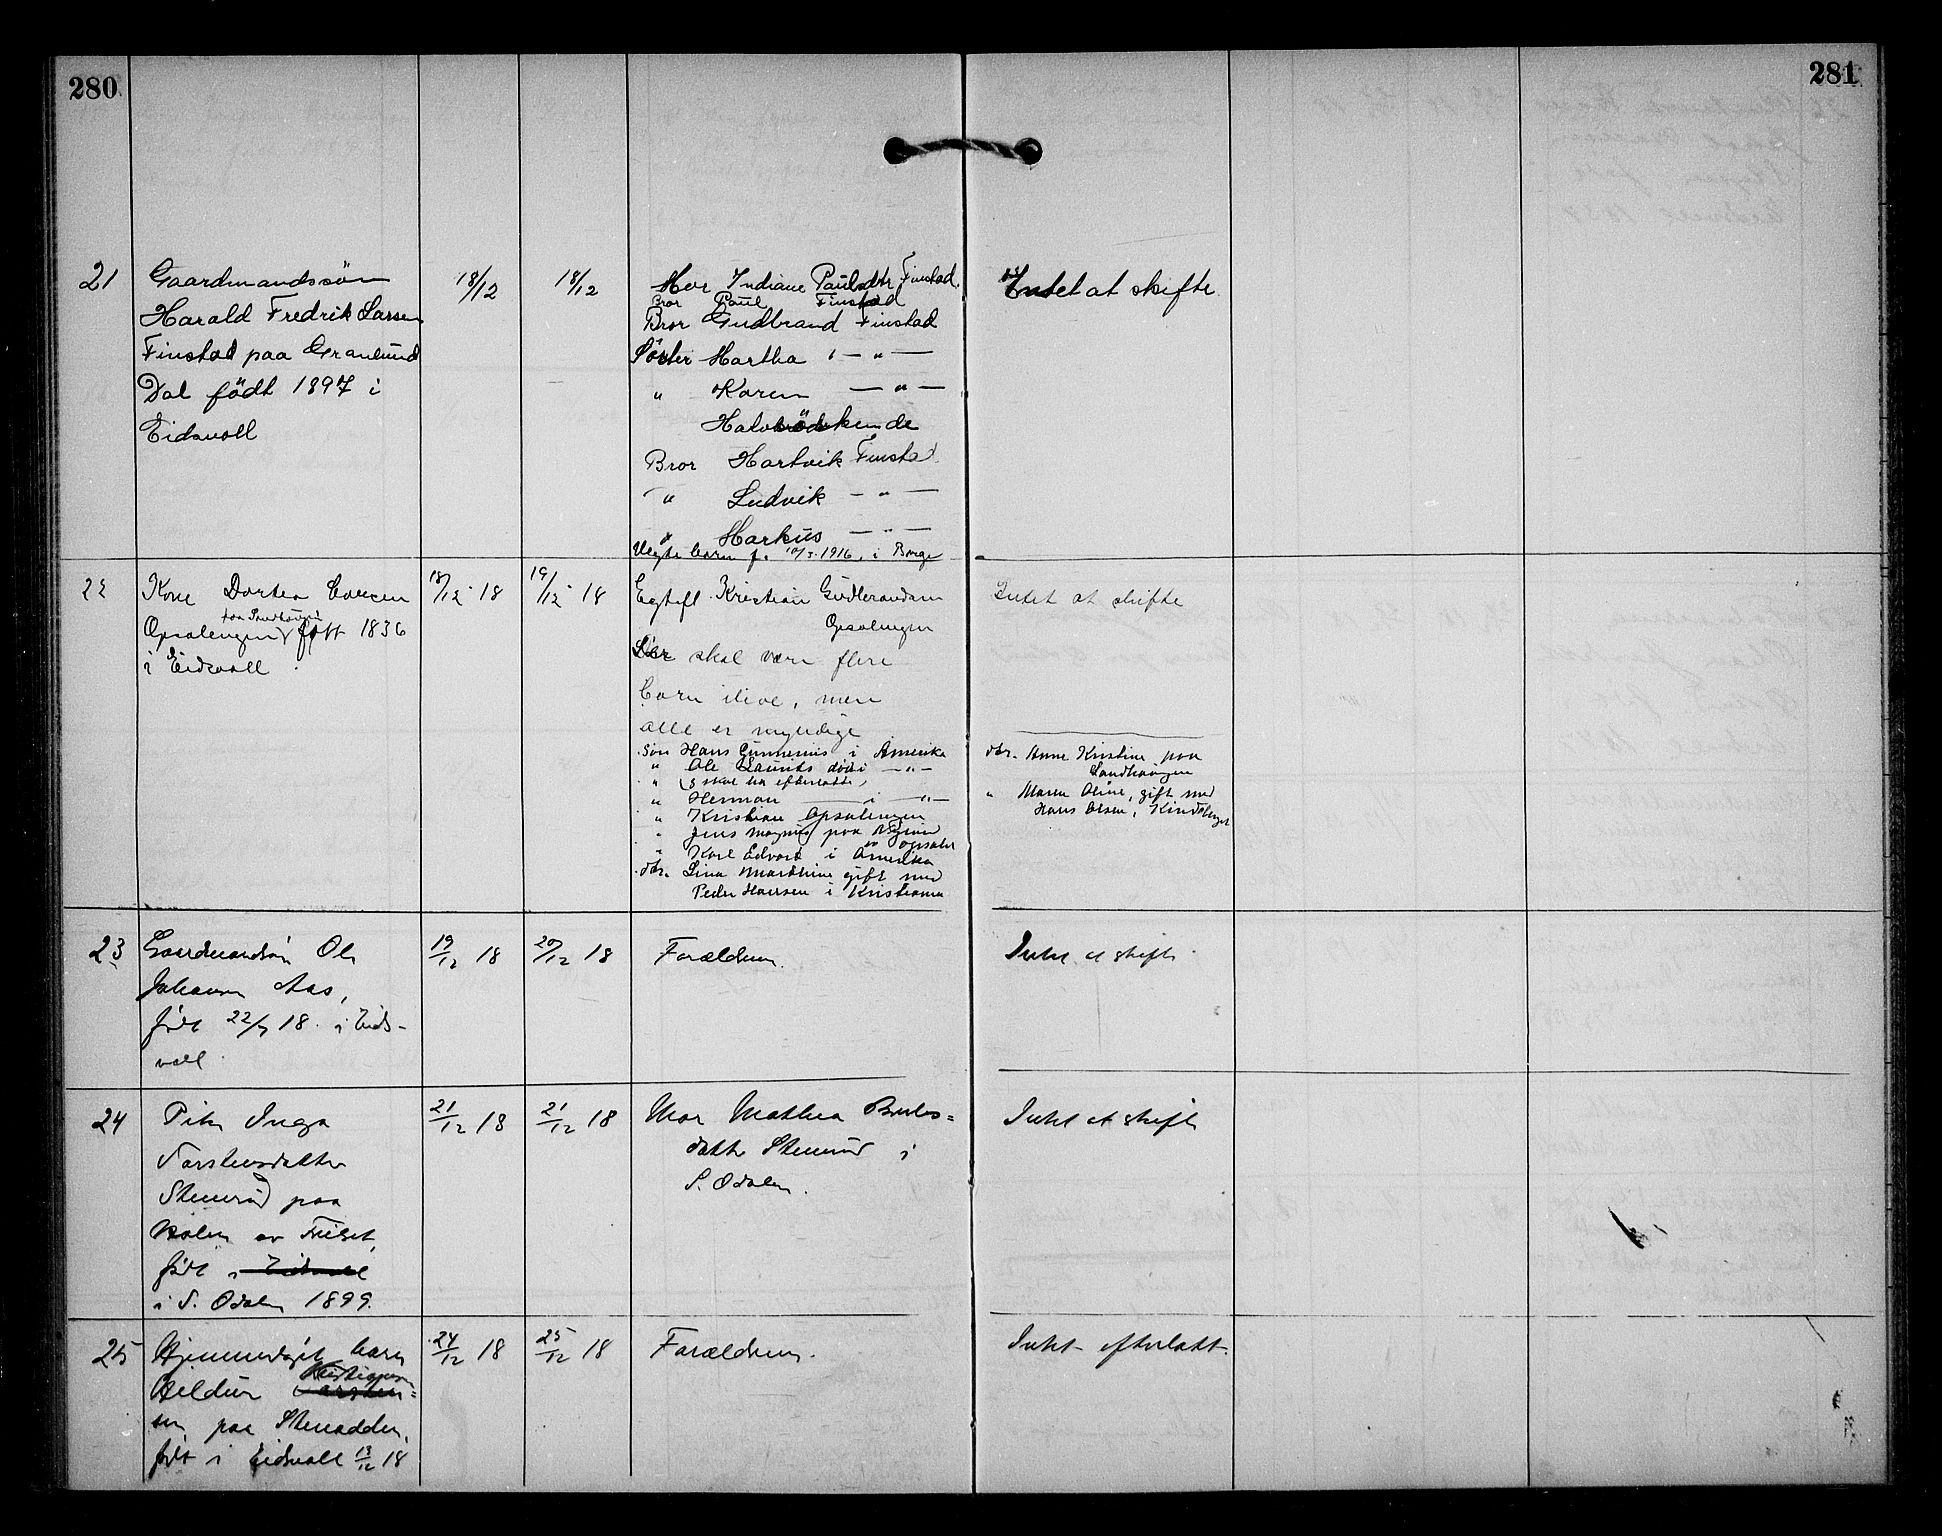 280
281
21
Gaardmandssön
Harald Fredrik Larsen
Finstad paa Granlund
Dal födt 1897 i
Eidsvoll
18/12
18/12
Mor Indiane Paulsdtr Finstad.
Bror Paul Finstad
Bror Gudbrand Finstad
Söster Martha " — " —
" Karen — " —
Halvsödskende
Bror Hartvik Finstad
" Ludvik — " —
" Markus — " —
Uegte barn f. 10/3 1916, i Borge
Intet at skifte
22
Kone Dortea
paa Sandhaugen
Opsalengen født 1836
i Eidsvoll.
18/12 18
19/12 18
Egtefl. Kristian Gudbrandsen
Opsalengen
Der skal være flere
børn ilive, men
alle er myndige
Søn Hans Gunnerius i Amerika
" Ole Laurits död i — " —
" (3 skal ha efterlatt)
" Herman — i — " —
" Kristian Opsalengen
" Jens Magnus paa
av Opsaler
" Karl Edvard i Amerika
dtr. Lina Marthine gift med
Peder Hansen i Kristiania
Intet at skifte
dtr. Anne Kristine paa
Sandhaugen
" Maren Oline, gift med
Hans Olsen,
23
Gaardmandsøn Ole
Johannes Aas,
født 22/7 18 i Eids-
voll
19/12 18
20/12 18
Forældrene.
Intet at skifte
24
Pike Inga
Torstensdatter
Stenerud paa
av
født i Eidsvoll
i S. Odalen 1899.
21/12 18
21/12 18
Mor Mathea
datter Stenerud i
S. Odalen.
Intet at skifte
25
Hjemmedøpt barn
Kristiansen
Hildur
sen paa Stenodden,
født i Eidsvoll 13/12 18
24/12 18
25/12 18
Forældrene.
Intet efterlatt.